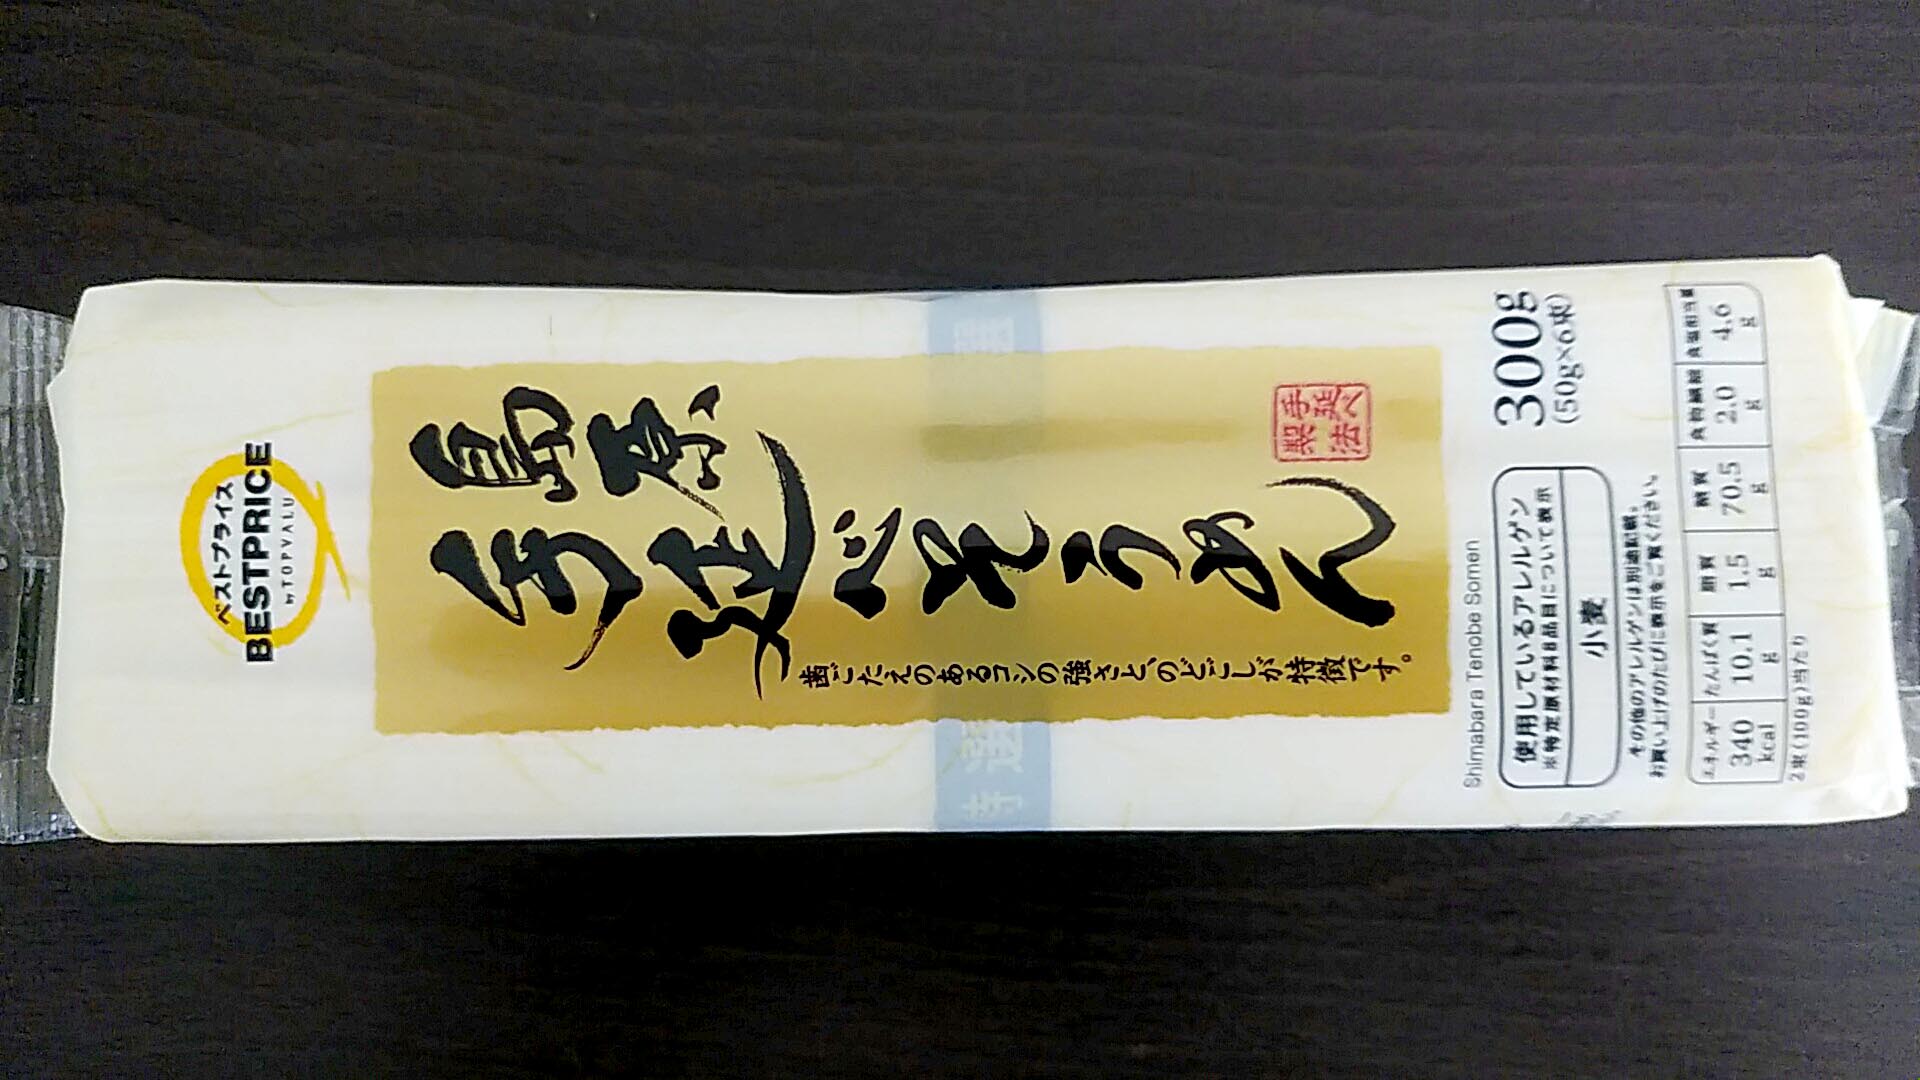 ベストプライス
BESTPRICE
by TOPVALU
島原
手延べそうめん
歯ごたえのあるコシの強さと、のどごしが特徴です。
手延べ
製法
特選
Shimabara Tenobe Somen
300g
(50g×6束)
使用しているアレルゲン
※特定原材料8品目について表示
小麦
その他のアレルゲンは別途記載。
お買い上げのたびに表示をご覧ください。
エネルギー たんぱく質 脂質 糖質 食物繊維 食塩相当量
340 kcal 10.1 g 1.5 g 70.5 g 2.0 g 4.6 g
2束(100g)当たり